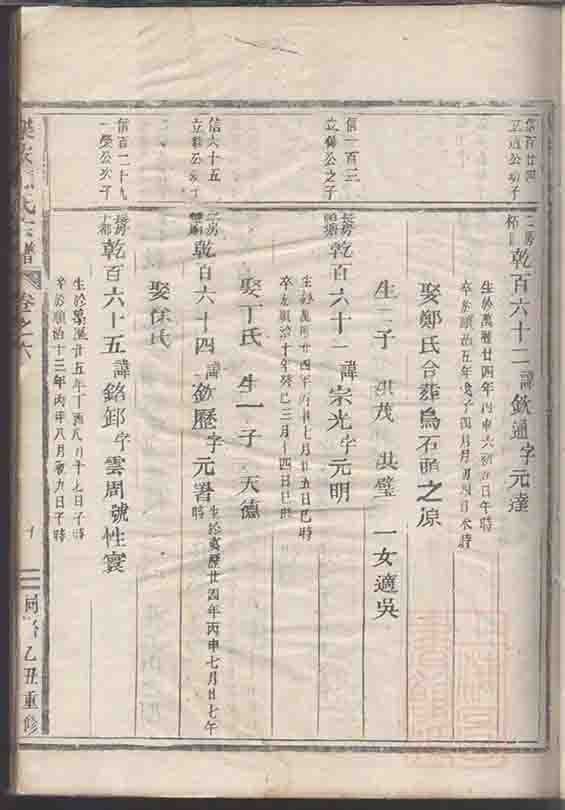 立通公次子
二房
乾百六十二諱欽通字元達
生於萬曆廿四年丙申六月
卒於順治五年戊子四月
娶鄭氏合葬烏石頭之原
生二子 洪茂 洪璧 一女適吳
信一百三
公之子
長房
乾百六十三諱宗光字元明
生於萬曆廿四年丙申七月廿五日巳時
卒於順治十年癸巳三月十四日巳時
娶丁氏 生一子 天德
信六十五
公次子
二房
乾百六十四諱欽歷字元署
生於萬曆廿四年丙申七月廿七午時
娶徐氏
信百二十九
一榮公次子
長房
乾百六十五諱銘卸字雲周號性寰
生於萬曆廿五年丁酉八月十七日子時
卒於順治十三年丙申八月初九日子時
氏宗譜
卷之六
同治乙丑重修